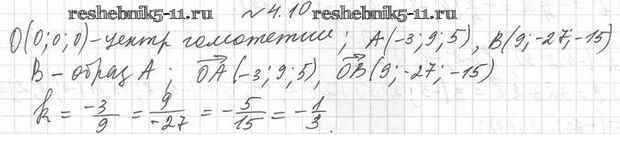 www.reshebnik5-11.ru
№ 4.10
www.reshebnik5-11.ru
O(0;0;0)-центр гомотетии; A(-3;9;5), B(9;-27;-15)
B - образ A; OA(-3;9;5), OB(9;-27;-15)
k = -3/9 = 9/-27 = -5/15 = -1/3.